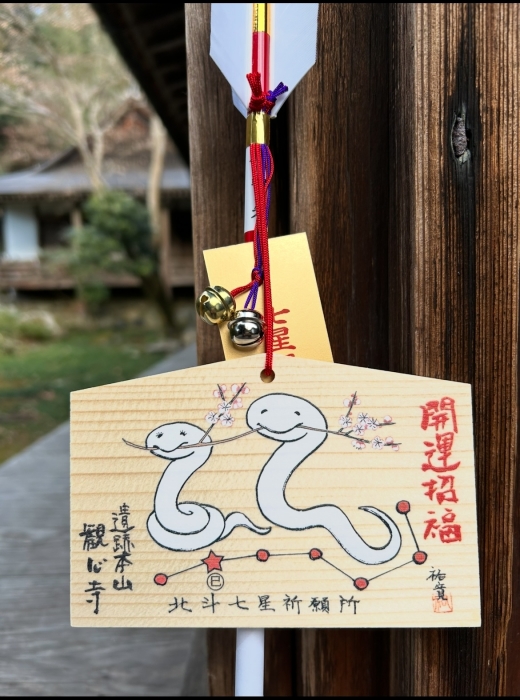 七星
開運招福
祐寛
巳
北斗七星祈願所
遺跡本山
観心寺